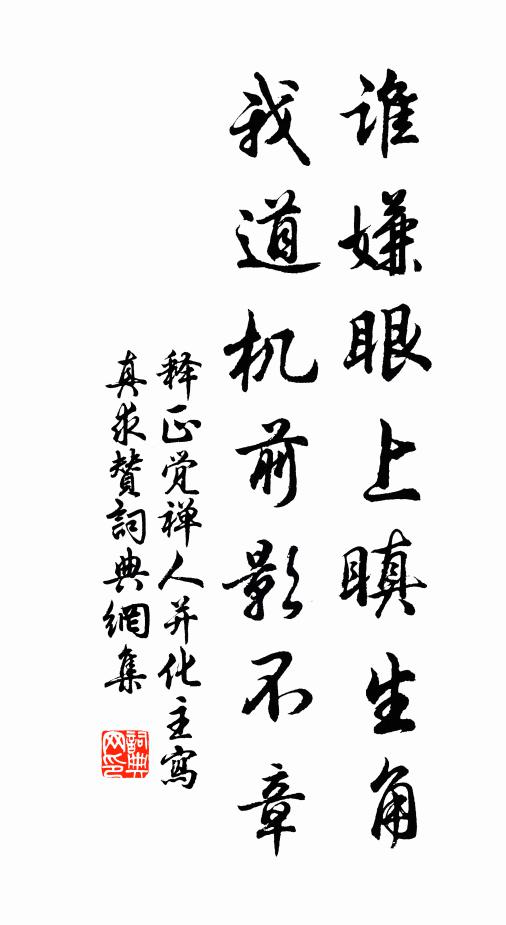 谁嫌眼上瞋生角
我道机前影不章
释正觉禅人并化主寫
真求赞詞典網集
詞典
网印